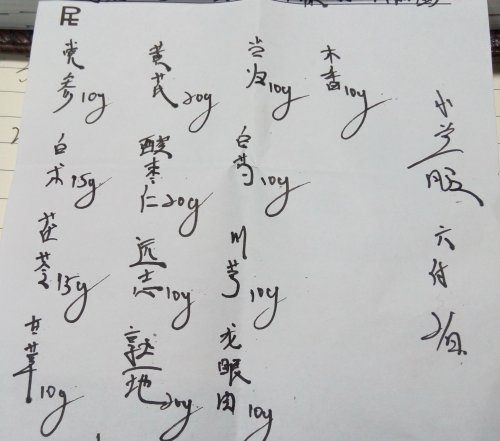 党参10g 黄芪20g 当归10g 木香10g
白术15g 酸枣仁20g 白芍10g
茯苓15g 远志10g 川芎10g
甘草10g 熟地20g 龙眼肉10g
水煎服 六付 2/日